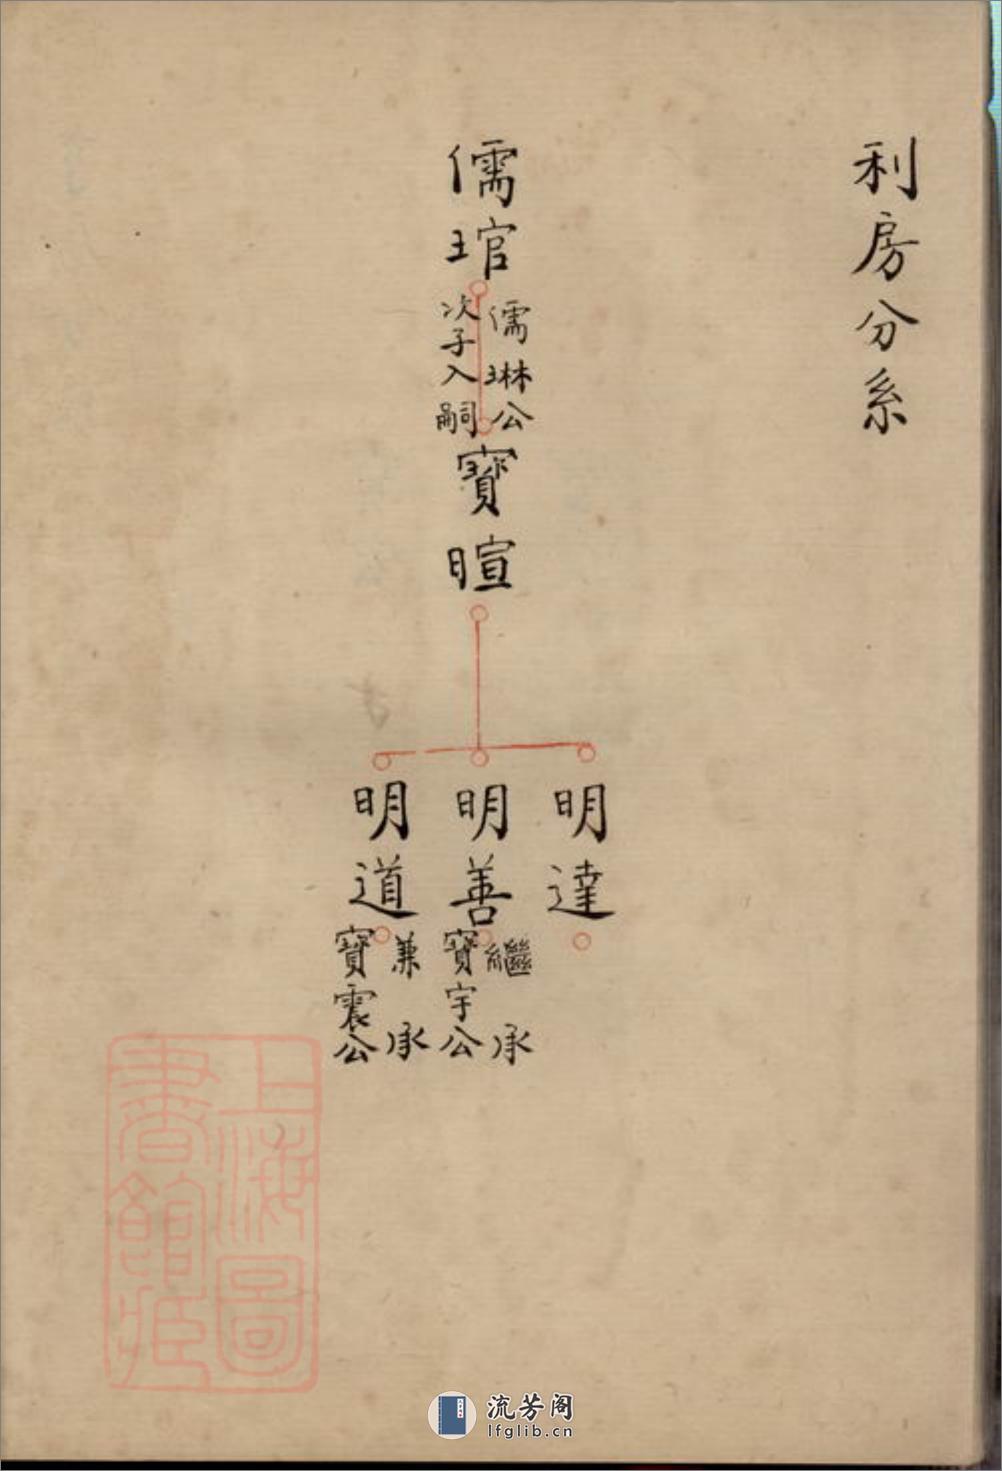 利房分系
儒琯
儒琳公
次子入嗣
寶暄
明達
明善
繼承
寶宇公
明道
兼承
寶震公
上海圖
書館藏
流芳阁
lfglib.cn